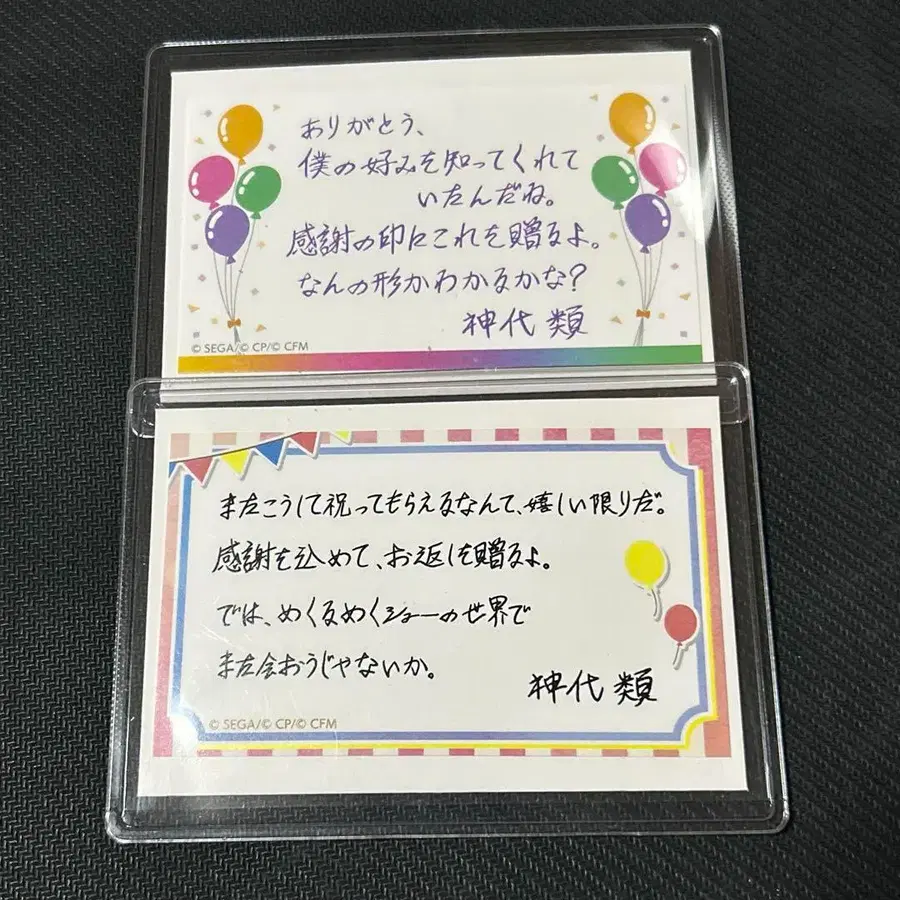 ありがとう、
僕の好みを知ってくれて
いたんだね。
感謝の印にこれを贈るよ。
なんの形かわかるかな?
神代 類
© SEGA/© CP/© CFM
またこうして祝ってもらえるなんて、嬉しい限りだ。
感謝を込めて、お返しを贈るよ。
では、めくるめくショーの世界で
また会おうじゃないか。
神代 類
© SEGA/© CP/© CFM